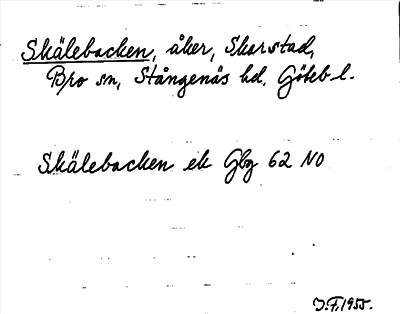 Skälebacken, åker, Skarstad,
Bro sn, Stångenäs hd, Göteb l.
Skälebacken ek Gbg 62 NO
J.F. 1955.